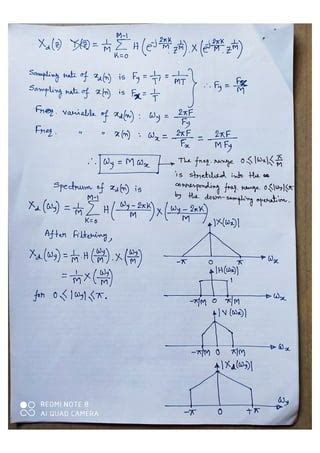 X_d(z) = 1/M Σ_{K=0}^{M-1} H(e^{-j2πK/M} z^{1/M}) X(e^{-j2πK/M} z^{1/M})
Sampling rate of x_d(m) is F_y = 1/T' = 1/MT
Sampling rate of x(n) is F_x = 1/T
∴ F_y = F_x/M
Freq. variable of x_d(m) : ω_y = 2πF/F_y
Freq. " " x(n) : ω_x = 2πF/F_x = 2πF/M F_y
∴ ω_y = M ω_x
→ The freq. range 0 ≤ |ω_x| ≤ π/M
is stretched into the
corresponding freq. range 0 ≤ |ω_y| ≤ π
by the down-sampling operation.
Spectrum of x_d(m) is
X_d(ω_y) = 1/M Σ_{K=0}^{M-1} H((ω_y - 2πK)/M) X((ω_y - 2πK)/M)
After filtering,
X_d(ω_y) = 1/M . H(ω_y/M) . X(ω_y/M)
= 1/M X(ω_y/M)
for 0 ≤ |ω_y| ≤ π.
|X(ω_x)|
-π 0 π ω_x
|H(ω_x)|
1
-π/M 0 π/M ω_x
|V(ω_x)|
-π/M 0 π/M ω_x
|X_d(ω_y)|
-π 0 +π ω_y
REDMI NOTE 8
AI QUAD CAMERA